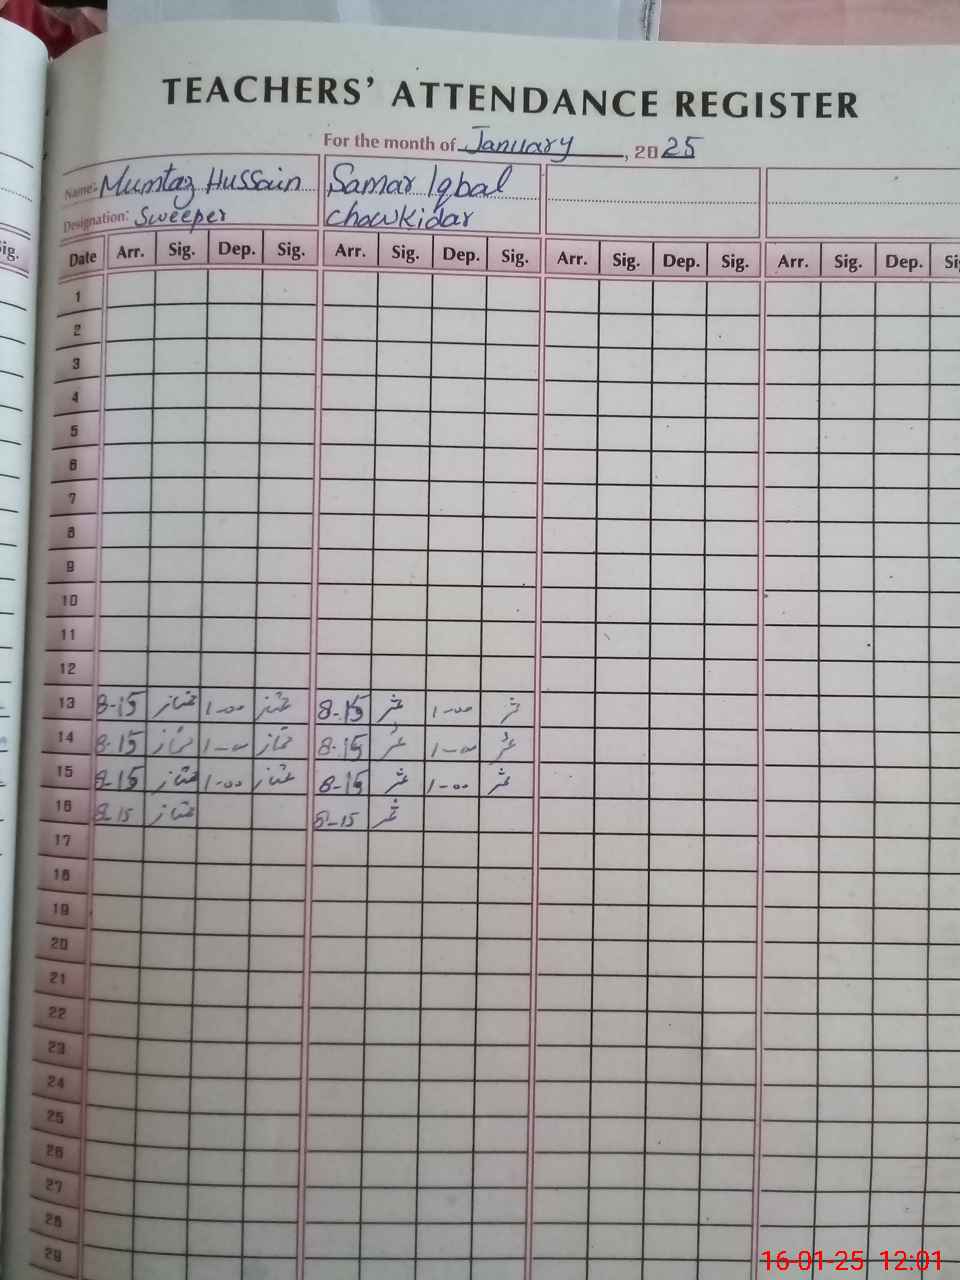 TEACHERS' ATTENDANCE REGISTER
For the month of January, 2025
Name: Mumtaz Hussain Samar Iqbal
Designation: Sweeper Chowkidar
Sig. Date Arr. Sig. Dep. Sig. Arr. Sig. Dep. Sig. Arr. Sig. Dep. Sig. Arr. Sig. Dep.
1
2
3
4
5
6
7
8
9
10
11
12
13 8-15 ممتاز 1-00 ممتاز 8-15 ثمر 1-00 ثمر
14 8-15 ممتاز 1-00 ممتاز 8-15 ثمر 1-00 ثمر
15 8-15 ممتاز 1-00 ممتاز 8-15 ثمر 1-00 ثمر
16 8-15 ممتاز 8-15 ثمر
17
18
19
20
21
22
23
24
25
26
27
28
29
16-01-25 12:01